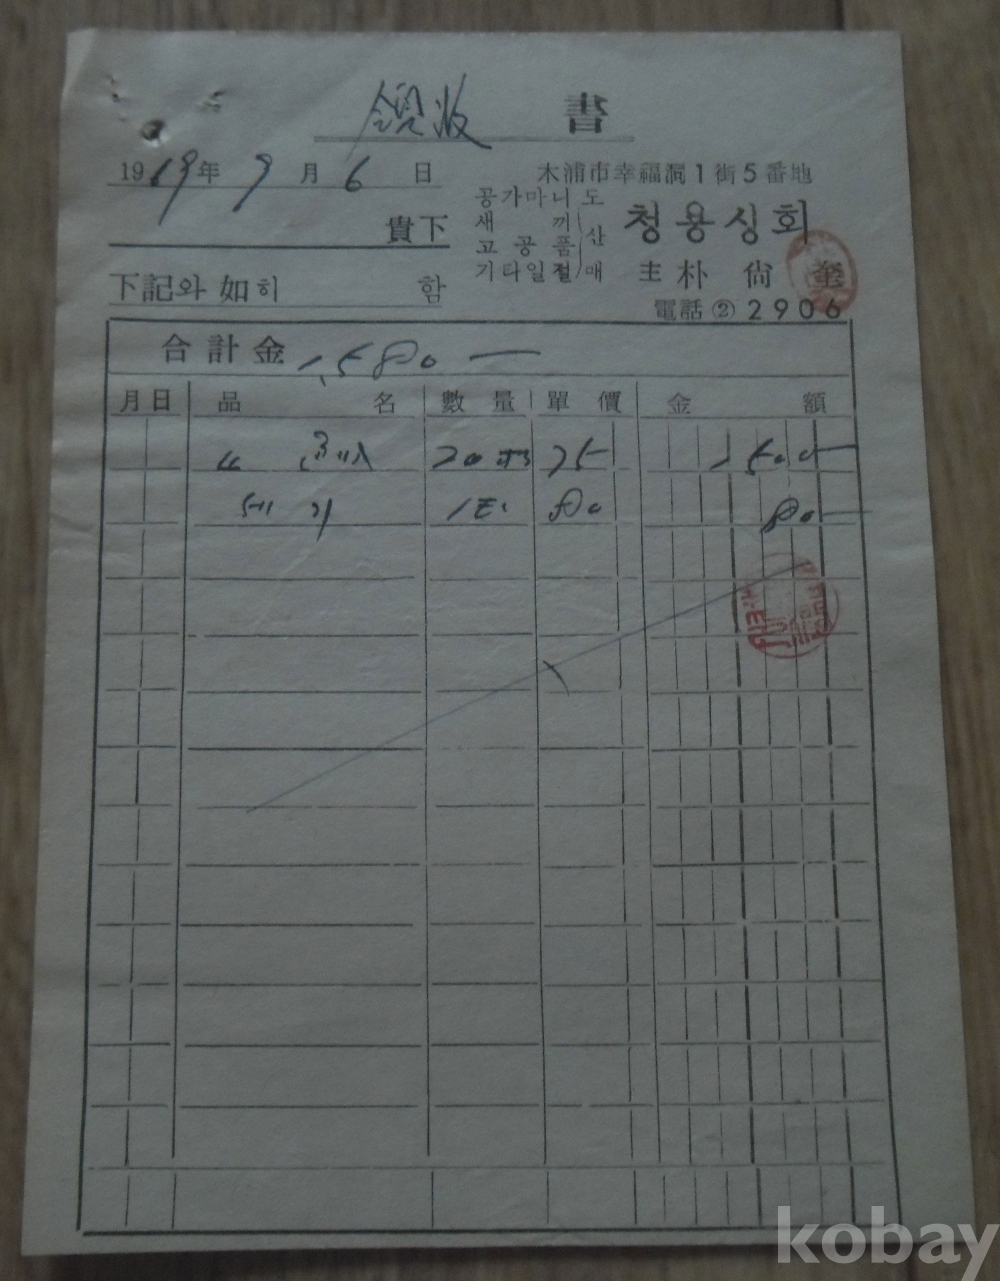 領收 書
1969年 9月 6日
木浦市幸福洞1街5番地
공가마니 도
새끼 산
고공품
기타일절 매
청용상회
貴下
主 朴尙奎
下記와 如히 함
電話 ② 2906
合計金 1,580 —
月日 品名 數量 單價 金額
20 75 1500 —
80 80 —
kobay